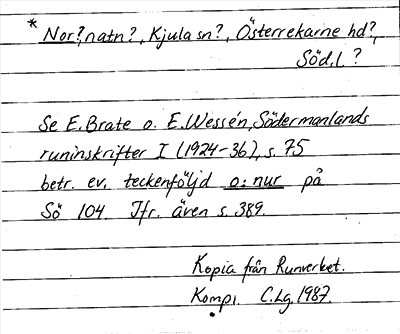 * Nor?, natn?, Kjula sn?, Österrekarne hd?,
Södl?
Se E. Brate o. E. Wessén, Södermanlands
runinskrifter I (1924-36), s. 75
betr. ev. teckenföljd o:nur på
Sö 104. Jfr. även s. 389.
Kopia från Runverket.
Kompl. C.Lg. 1987.